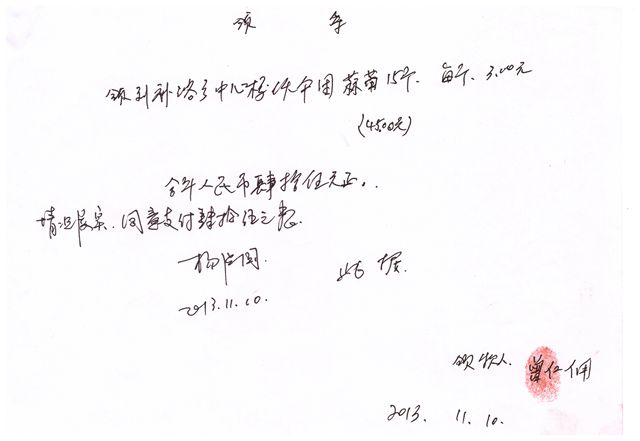 领 条
领到补洛乡中心校伙食团蒜苗15斤. 每斤. 3.00元
(45.00元)
合计人民币肆拾伍元正.
情况属实. 同意支付肆拾伍元整.
2013.11.10.
此 据.
领款人
2013. 11. 10.